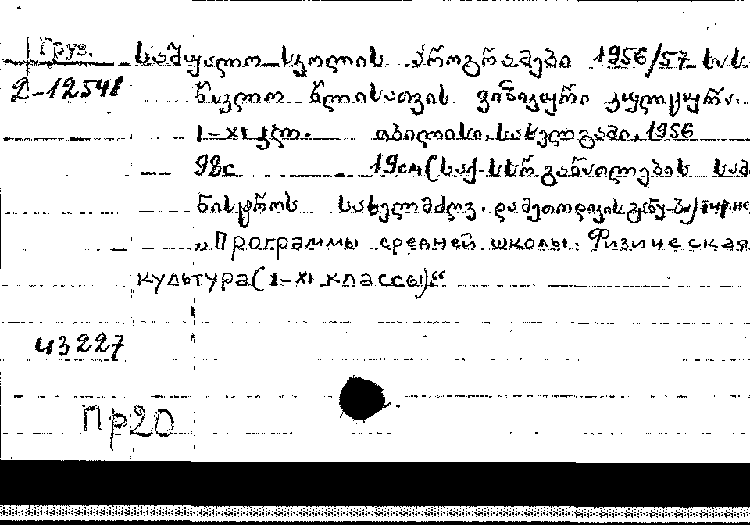 Груз.
2-12548
საშუალო სკოლის პროგრამები 1956/57 სას
წავლო წლისათვის ფიზიკური კულტურა.
I-XI კლ. თბილისი, სახელგამი, 1956
98с 19см (საქ. სსრ განათლების სამ
ნისტროს სახელმძღვ. და მეთოდიკის
„Программы средней школы. Физическая
культура (I-XI классы)“
43227
Пр20